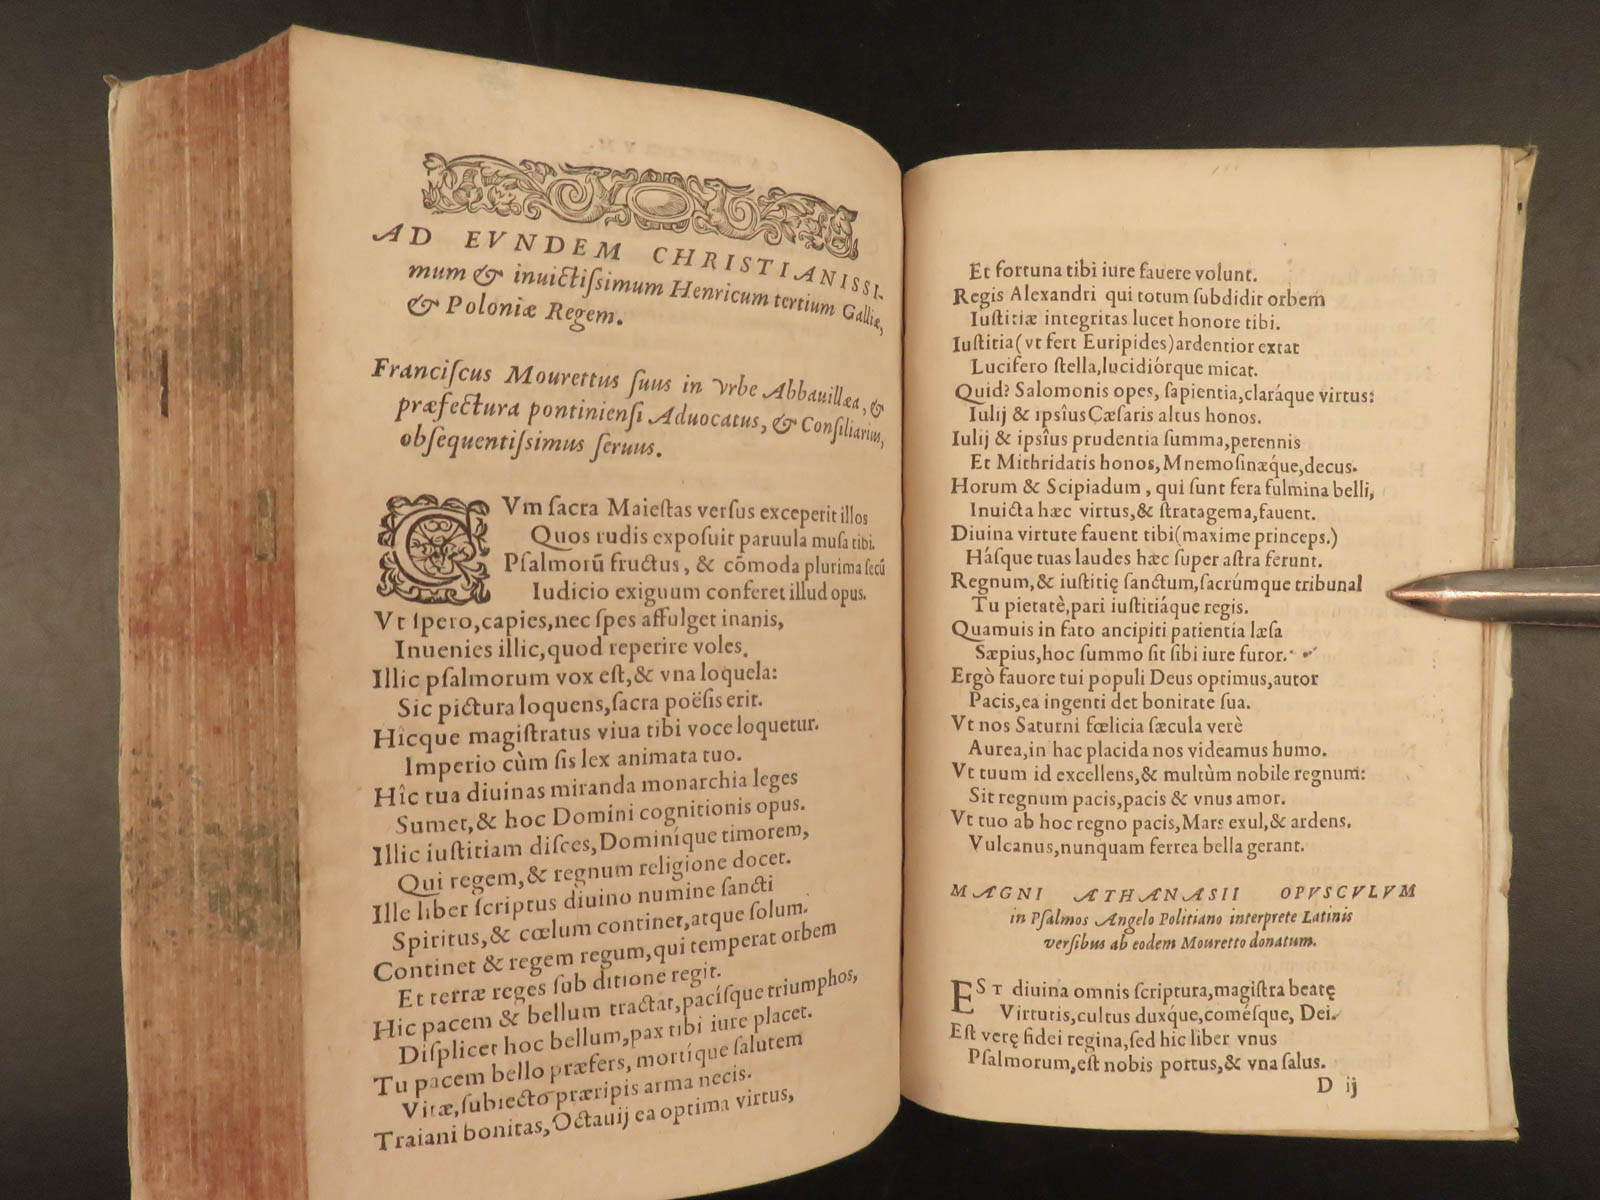 AD EVNDEM CHRISTIANISSI-
mum & inuictiſsimum Henricum tertium Galliæ,
& Poloniæ Regem.
Franciſcus Mourettus ſuus in vrbe Abbauillæa, &
præfectura pontinienſi Aduocatus, & Conſiliarius,
obſequentiſsimus ſeruus.
CVm ſacra Maieſtas verſus exceperit illos
Quos rudis expoſuit paruula muſa tibi.
Pſalmorũ fructus, & cõmoda plurima ſecũ
Iudicio exiguum conferet illud opus.
Vt ſpero, capies, nec ſpes affulget inanis,
Inuenies illic, quod reperire voles.
Illic pſalmorum vox eſt, & vna loquela:
Sic pictura loquens, ſacra poëſis erit.
Hicque magiſtratus viua tibi voce loquetur.
Imperio cùm ſis lex animata tuo.
Hîc tua diuinas miranda monarchia leges
Sumet, & hoc Domini cognitionis opus.
Illic iuſtitiam diſces, Dominíque timorem,
Qui regem, & regnum religione docet.
Ille liber ſcriptus diuino numine ſancti
Spiritus, & cœlum continet, atque ſolum.
Continet & regem regum, qui temperat orbem
Et terræ reges ſub ditione regit.
Hic pacem & bellum tractat, pacíſque triumphos,
Diſplicet hoc bellum, pax tibi iure placet.
Tu pacem bello præfers, mortíque ſalutem
Vitæ, ſubiecto præripis arma necis.
Traiani bonitas, Octauij ea optima virtus,
Et fortuna tibi iure fauere volunt.
Regis Alexandri qui totum ſubdidit orbem
Iuſtitiæ integritas lucet honore tibi.
Iuſtitia (vt fert Euripides) ardentior extat
Lucifero ſtella, lucidiórque micat.
Quid? Salomonis opes, ſapientia, claráque virtus:
Iulij & ipſîus Cæſaris altus honos.
Iulij & ipſîus prudentia ſumma, perennis
Et Mithridatis honos, Mnemoſinæq́ue, decus.
Horum & Scipiadum, qui ſunt fera fulmina belli,
Inuicta hæc virtus, & ſtratagema, fauent.
Diuina virtute fauent tibi (maxime princeps.)
Háſque tuas laudes hæc ſuper aſtra ferunt.
Regnum, & iuſtitię ſanctum, ſacrúmque tribunal
Tu pietatè, pari iuſtitiáque regis.
Quamuis in fato ancipiti patientia læſa
Sæpius, hoc ſummo ſit ſibi iure furor.
Ergò fauore tui populi Deus optimus, autor
Pacis, ea ingenti det bonitate ſua.
Vt nos Saturni fœlicia ſæcula verè
Aurea, in hac placida nos videamus humo.
Vt tuum id excellens, & multùm nobile regnum:
Sit regnum pacis, pacis & vnus amor.
Vt tuo ab hoc regno pacis, Mars exul, & ardens.
Vulcanus, nunquam ferrea bella gerant.
MAGNI ATHANASII OPVSCVLVM
in Pſalmos Angelo Politiano interprete Latinis
verſibus ab eodem Mouretto donatum.
EST diuina omnis ſcriptura, magiſtra beatę
Virtutis, cultus duxq́ue, coméſque, Dei.
Eſt verę fidei regina, ſed hic liber vnus
Pſalmorum, eſt nobis portus, & vna ſalus.
D ij